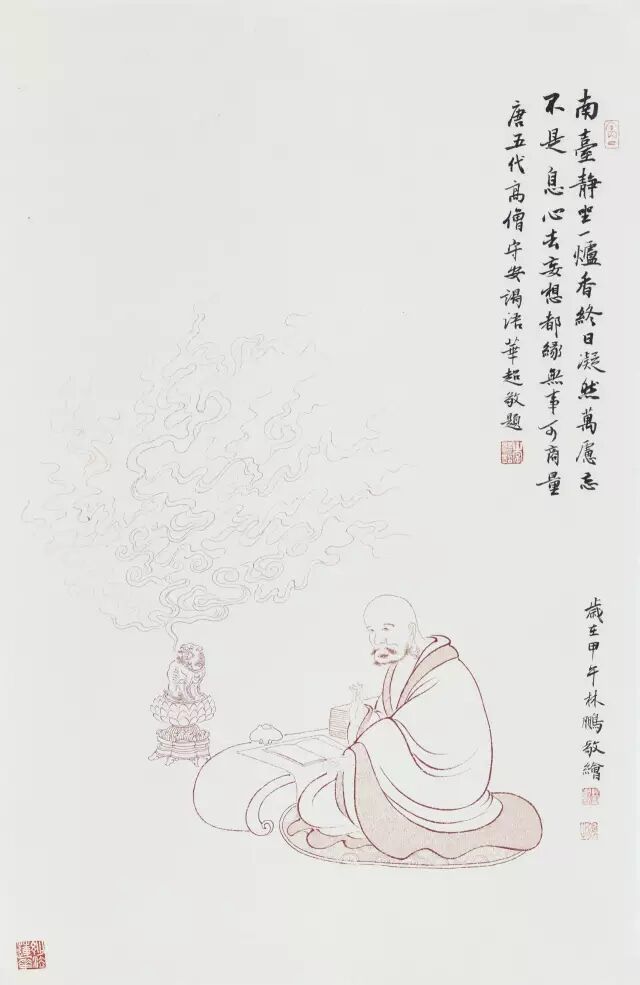 南臺静坐一爐香終日凝然萬慮忘
不是息心去妄想都緣無事可商量
唐五代高僧守安華超敬題
歲在甲午林鵬敬繪